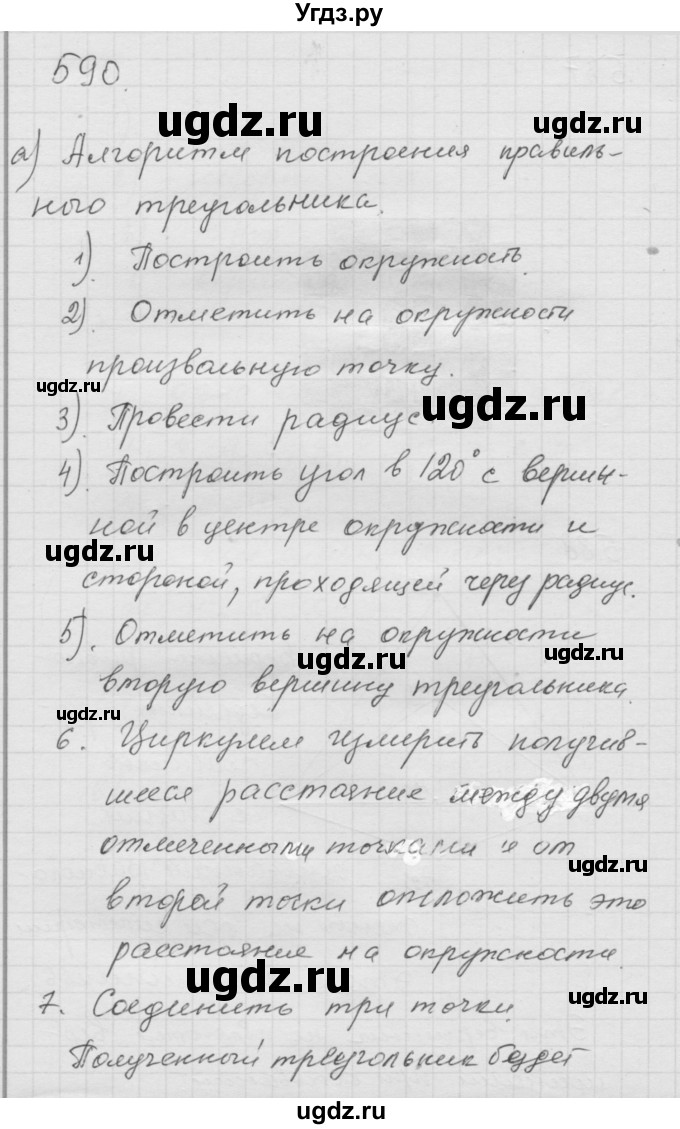 Угдз.ру
590.
ugdz.ru
ugdz.ru
а) Алгоритм построения правиль-
ного треугольника.
1). Построить окружность.
2). Отметить на окружности
произвальную точку.
ugdz.ru
ugdz.ru
3). Провести радиус
4). Построить угол в 120° с верши-
ной в центре окружности и
ugdz.ru
стороной, проходящей через радиус.
5). Отметить на окружности
ugdz.ru
ugdz.ru
вторую вершину треугольника.
ugdz.ru
6. Циркулем измерить получив-
шееся расстояние между двумя
отмеченными точками и от
ugdz.ru
второй точки отложить это
расстояние на окружности.
ugdz.ru
7. Соединить три точки.
ugdz.ru
Полученный треугольник будет
ugdz.ru